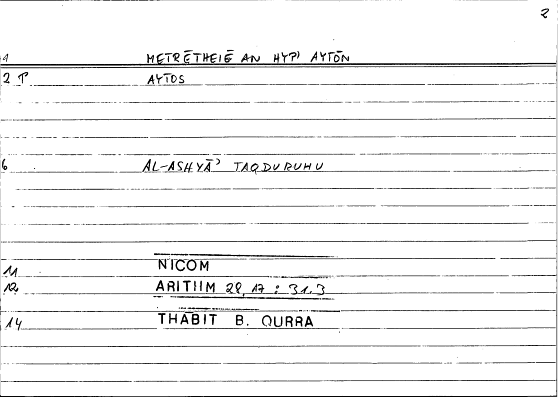 2
1 METRĒTHEIĒ AN HYP' AYTŌN
2 ↑ AYTOS
6 AL-ASHYĀ' TAQDURUHU
11 NICOM
12 ARITIIM 28, 17 : 31.3
14 THĀBIT B. QURRA